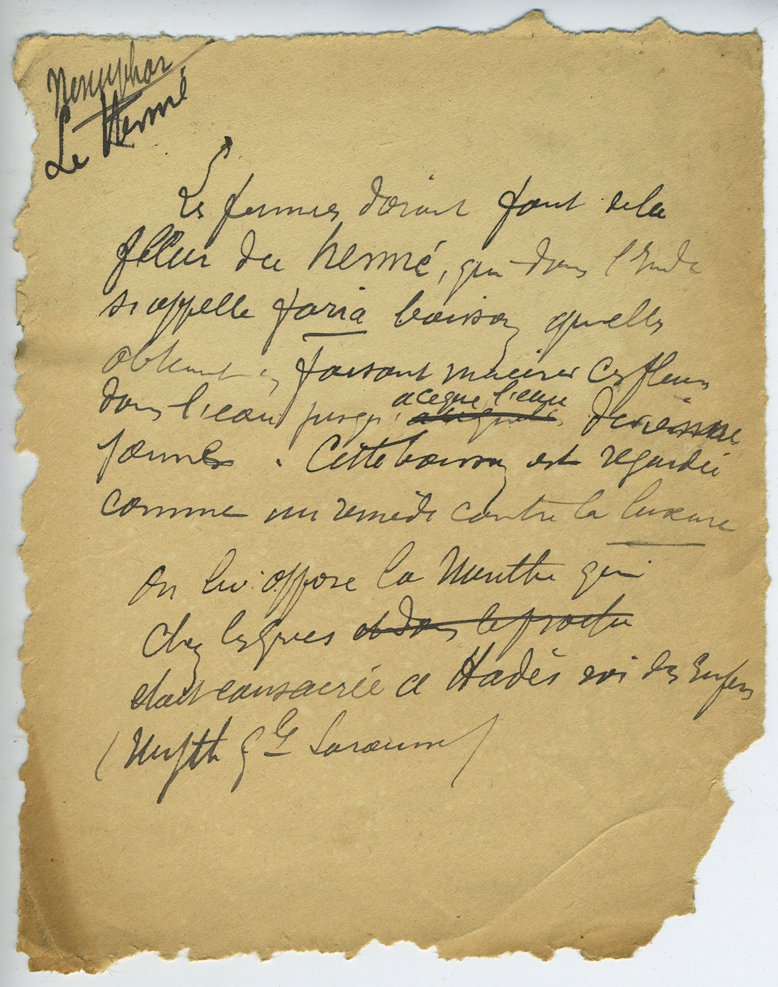 Nenuphar
Le Hermé
Les femmes dorient font de la
fleur du hermé, qui dans l'Inde
s'appelle faria boisson qu'elles
obtiennent en faisant macérer ces fleurs
dans l'eau jusqu'
a ceque l'eau
devienne
jaune. Cette boisson est regardée
comme un remède contre la luxure
On lui oppose la Menthe qui
chez les grecs et dans
était consacrée a Hadès roi des Enfers
(Myth G G Larousse)